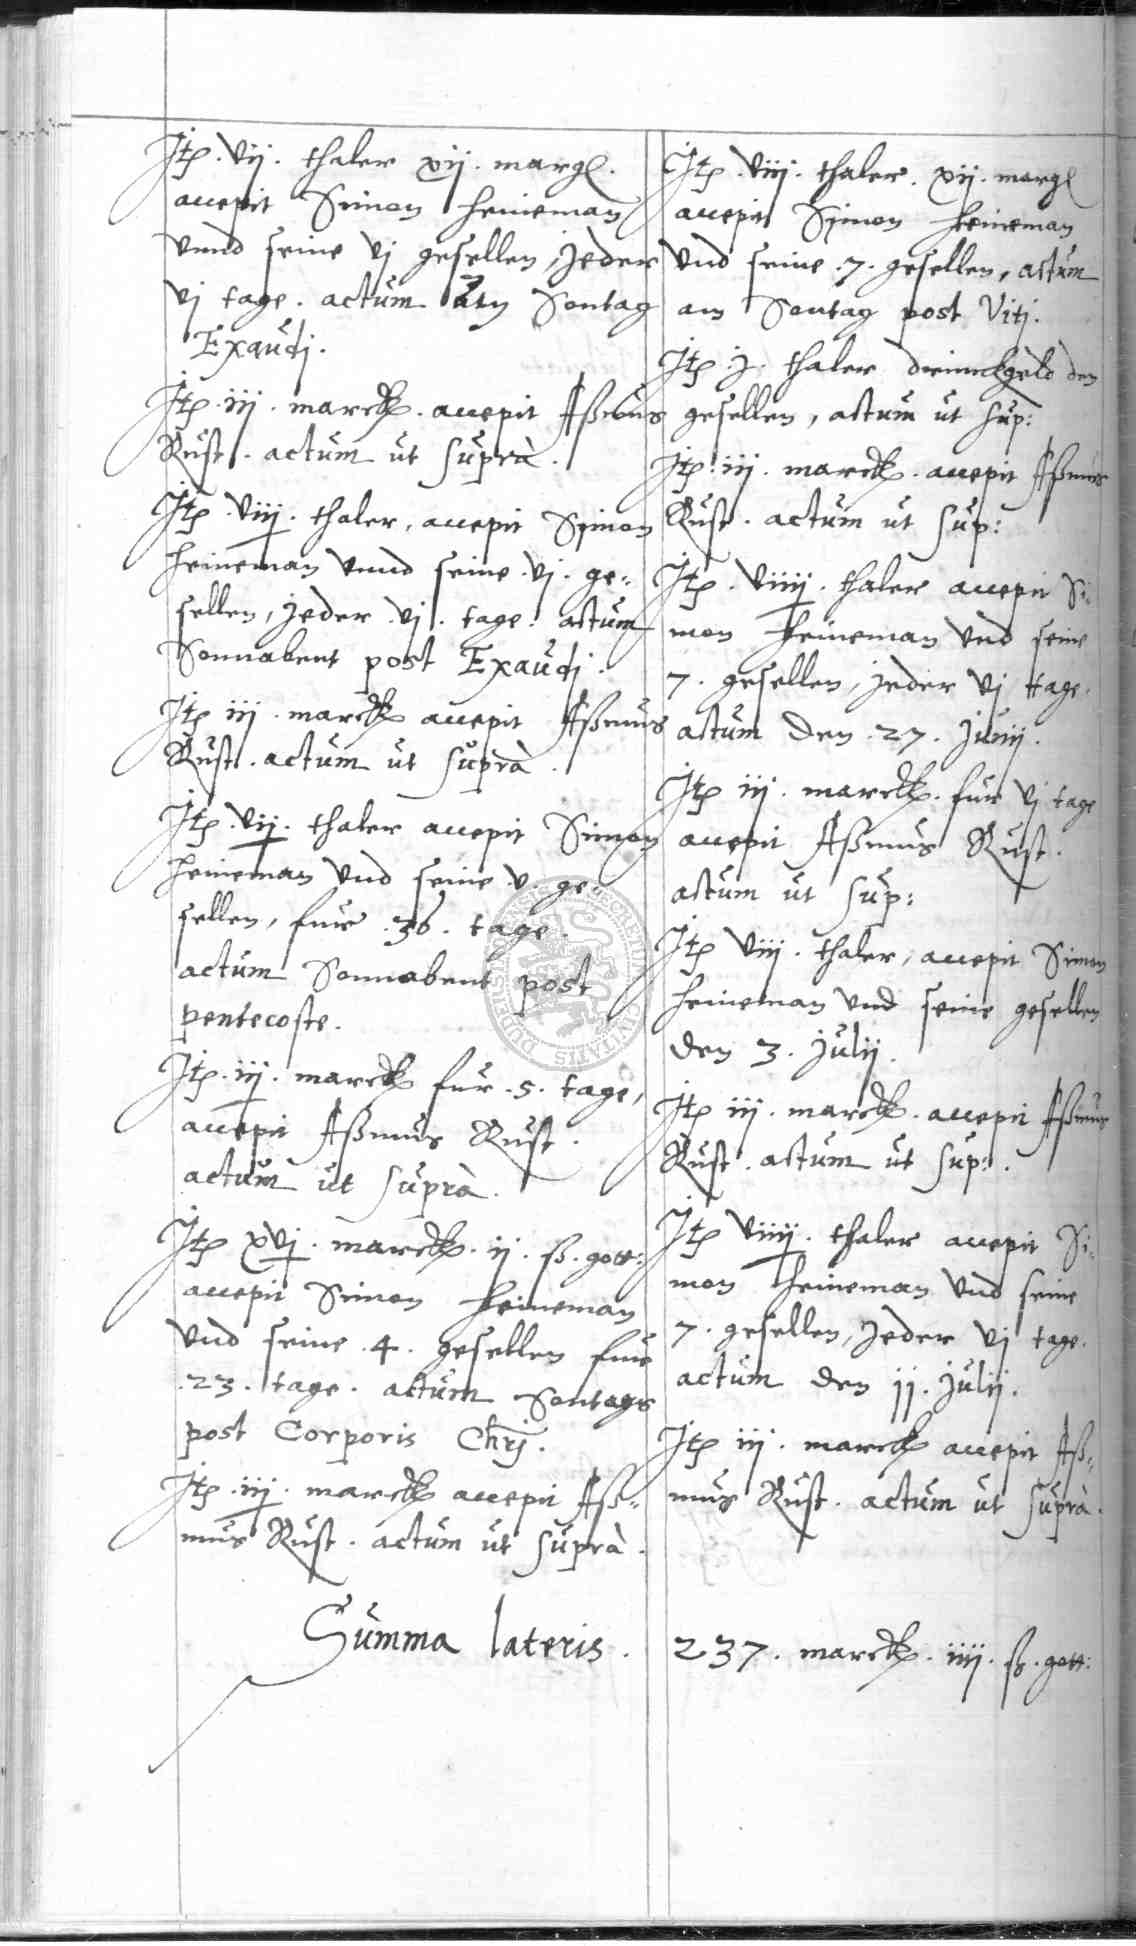 Itp . vij . thaler xij . margl .
accepit Simon Heineman
vnnd seine vj gesellen, jeder
vj tage . actum am Sontag
Exaudi .
Itp . iij . marck . accepit Aßmus
Rust . actum ut suprà .
Itp . viij . thaler, accepit Simon
Heineman vnnd seine . vj . ge=
sellen, jeder . vj . tage . actum
Sonnabent post Exaudj .
Itp iij . marck accepit Aßmus
Rust . actum ut suprà .
Itp . vij . thaler accepit Simon
Heineman vnd seine . v . ge=
sellen, fur . 36 . tage .
actum Sonnabent post
pentecoste .
Itp . iij . marck fur . 5 . tage,
accepit Aßmus Rust .
actum ut suprà .
Itp xvj . marck . ij . ß . gott:
accepit Simon Heineman
vnd seine . 4 . gesellen fur
. 23 . tage . actum Sontags
post Corporis Chrj .
Itp . iij . marck accepit Aß=
mus Rust . actum ut suprà .
Itp . viij . thaler . xij . margl
accepit Simon Heineman
vnd seine . 7 . gesellen, actum
am Sontag post Vitj .
Itp . j . thaler drinckgeld den
gesellen, actum ut sup:
Itp . iij . marck . accepit Aßmus
Rust . actum ut sup:
Itp . viiij . thaler accepit Si=
mon Heineman vnd seine
7 . gesellen, jeder vj tage .
actum den . 27 . Junij .
Itp iij . marck . fur vj tage
accepit Aßmus Rust .
actum ut sup:
Itp viij . thaler, accepit Simon
Heineman vnd seine gesellen
den 3 . Julij .
Itp iij . marck . accepit Aßmus
Rust . actum ut sup: .
Itp viiij . thaler accepit Si=
mon Heineman vnd seine
7 . gesellen, jeder vj tage .
actum den 11 . Julij .
Itp iij . marck accepit Aß=
mus Rust . actum ut suprà .
Summa lateris . 237 . marck . iiij . ß . gott:
SECRETUM CIVITATIS DUDERSTADENSIS